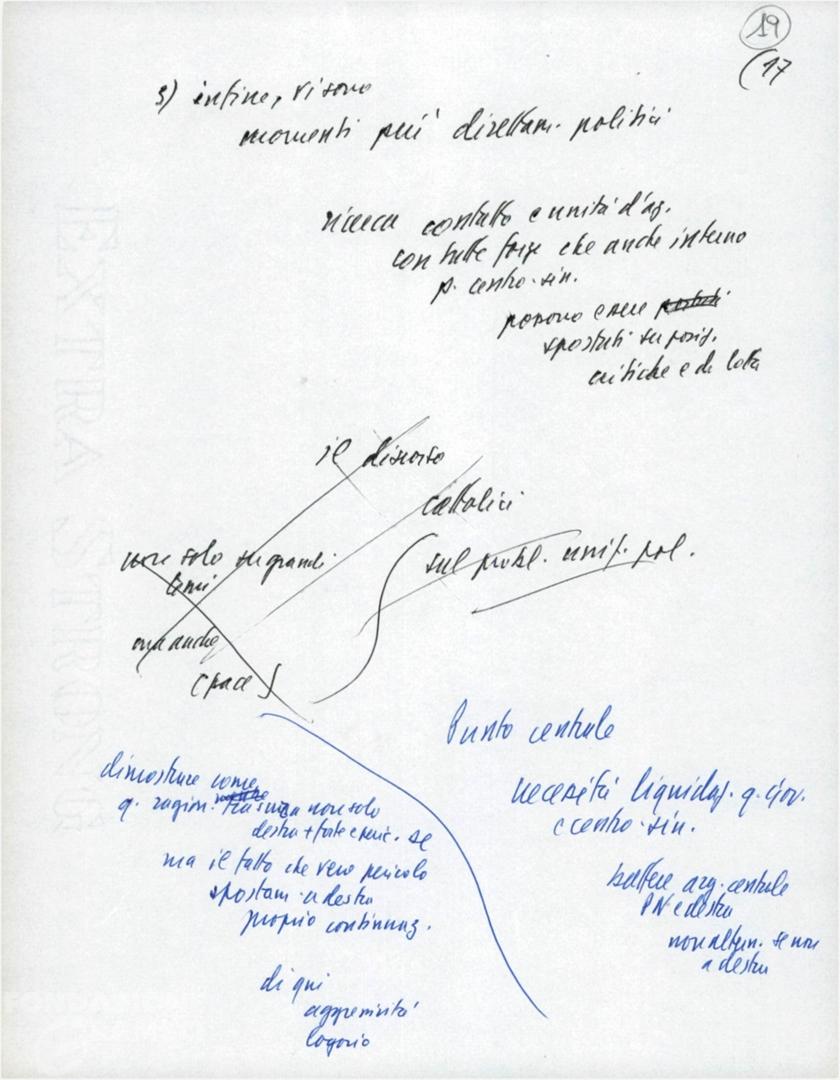 19
(17
3) infine, vi sono
momenti più direttam. politici
ricerca contatto e unità d'az.
con tutte forze che anche interno
p. centro-sin.
possono essere
spostati su posiz.
critiche e di lotta
il discorso
cattolici
non solo su grandi
temi
sul probl. unif. pol.
ma anche
(pace)
Punto centrale
dimostrare come
q. ragion. non solo
destra + forte
necessità liquidaz. q. gov.
e centro-sin.
ma il fatto che vero pericolo
spostam. a destra
proprio continuaz.
battere arg. centrale
PN e destra
non altern. se non
a destra
di qui
aggressività
logorio
EXTRA STRONG